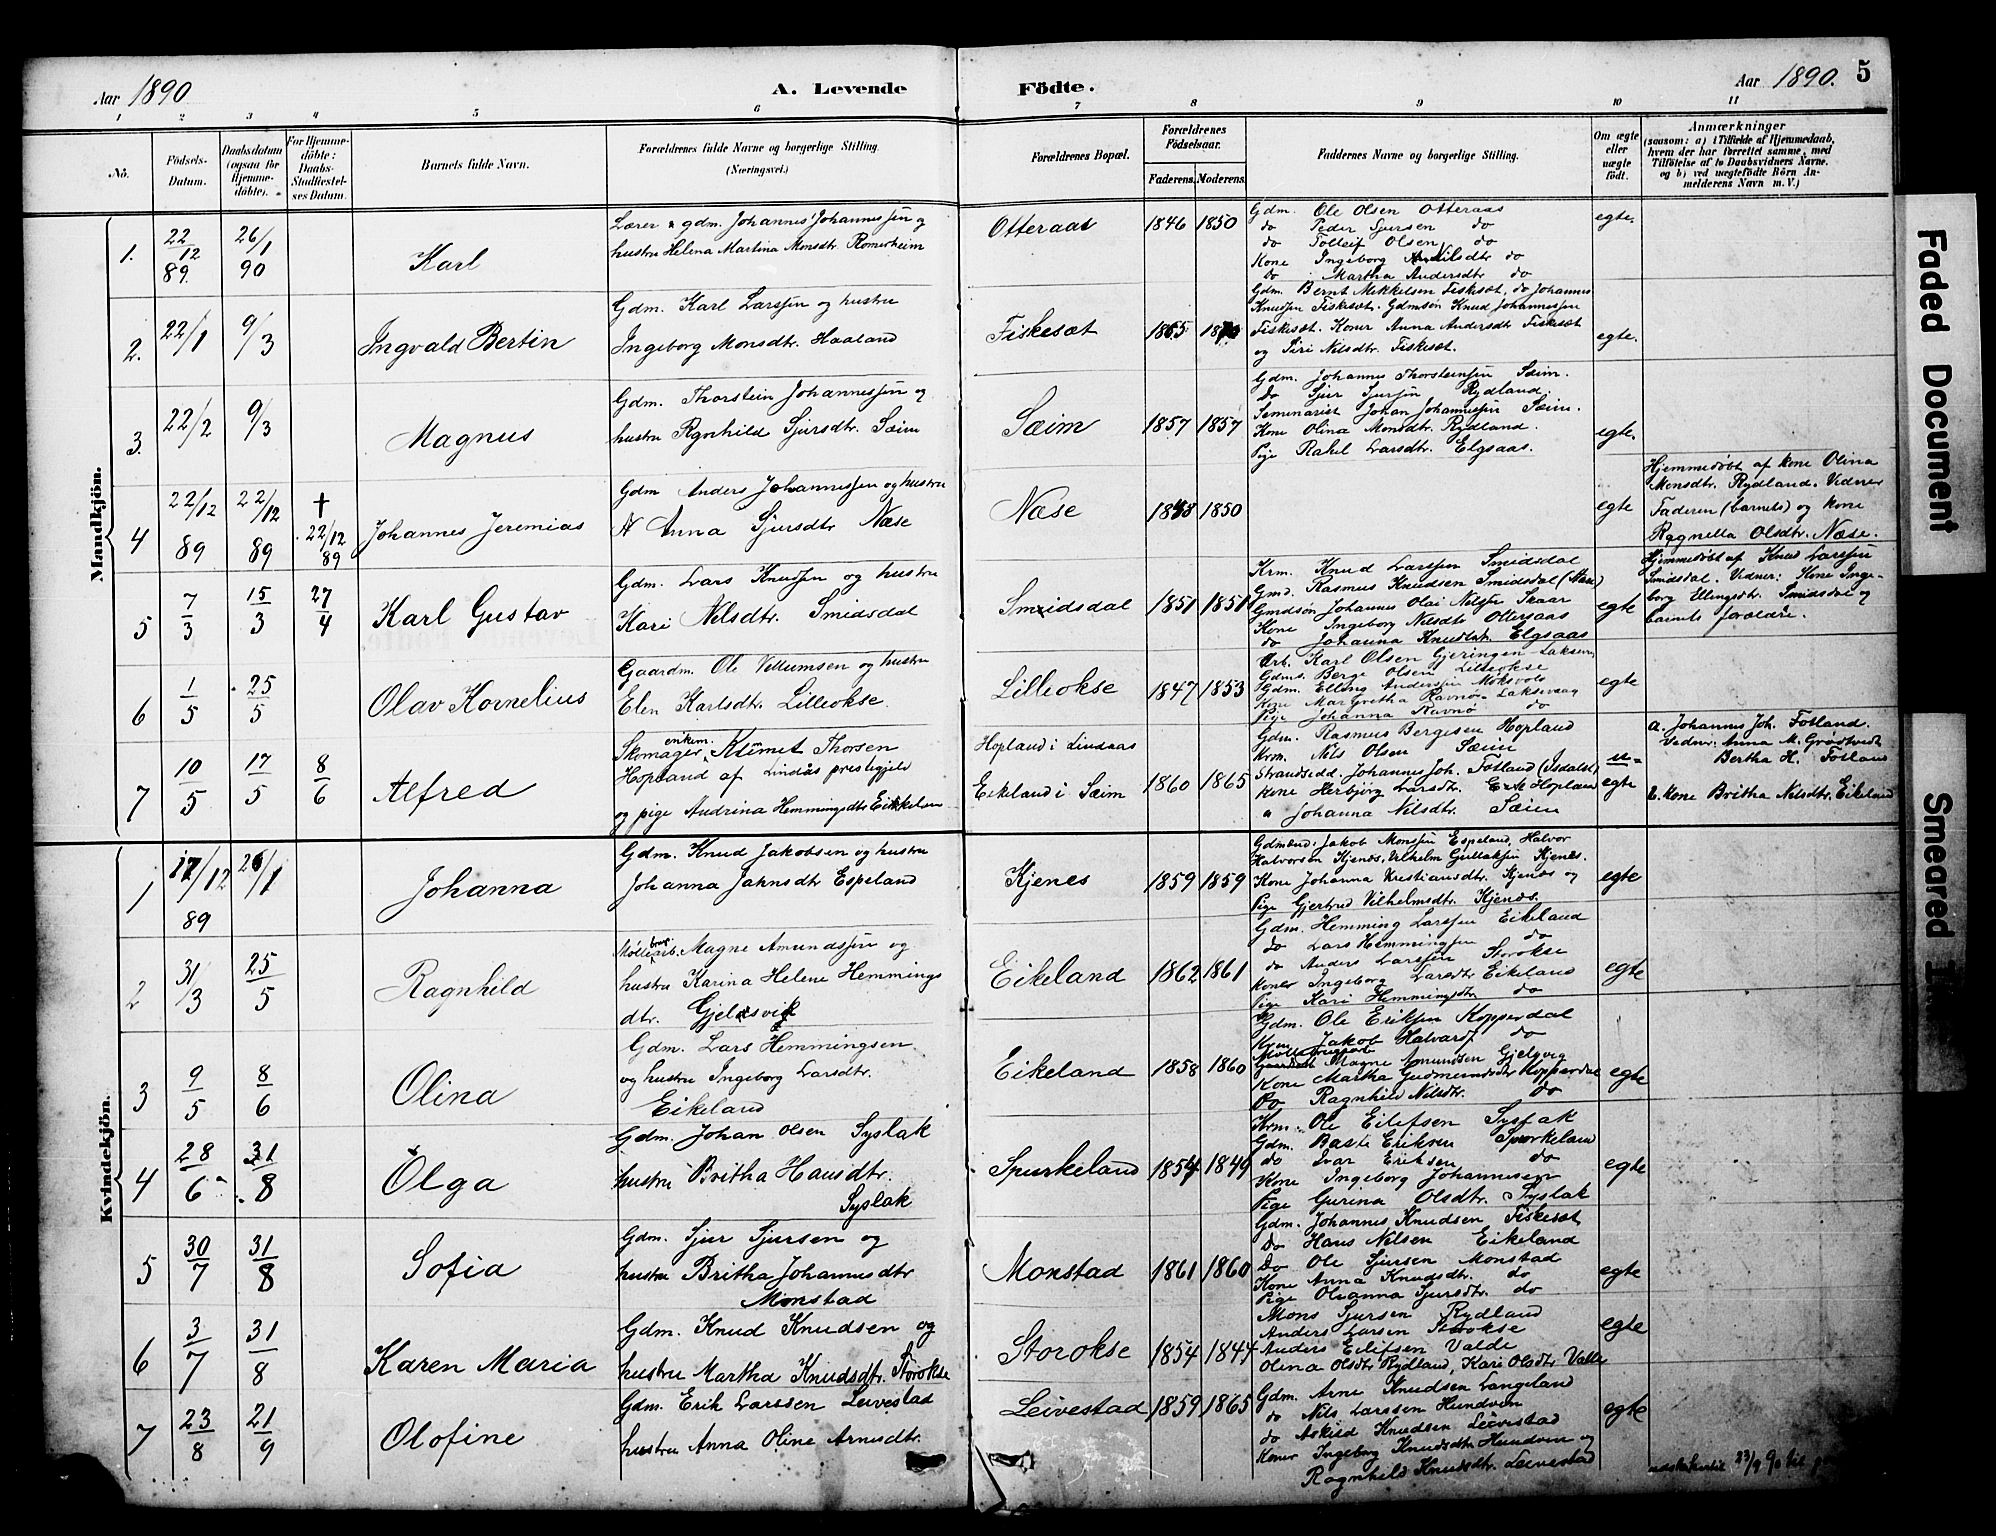 Aar 1890
A. Levende Födte.
Aar 1890. 5
1 2 3 4 5 6 7 8 9 10 11
No.
Födsels-Datum.
Daabsdatum (ogsaa for Hjemmedöbte).
For Hjemmedöbte: Daabs-Stadfæstelses Datum.
Barnets fulde Navn.
Forældrenes fulde Navne og borgerlige Stilling. (Næringsvei.)
Forældrenes Bopæl.
Forældrenes Födselsaar.
Faderens. Moderens.
Faddernes Navne og borgerlige Stilling.
Om ægte eller uægte födt.
Anmærkninger
(saasom: a) i Tilfælde af Hjemmedaab, hvem der har forrettet samme, med Tilföielse af to Daabsvidners Navne. og b) ved uægtefödte Börn Anmelderens Navn m. V.)
Mandkjön.
1. 22/12 89 26/1 90 Karl
Lærer & gdm. Johannes Johannessen og
hustru Helena Martina Monsdtr Romerheim
Otteraas 1846 1850
Gdm. Ole Olsen Otteraas
do Peder Sjursen do
do Tolleif Olsen do
Kone Ingeborg Nilsdtr do
do Martha Andersdtr do
egte.
2. 22/1 9/3 Ingvald Bertin
Gdm. Karl Larssen og hustru
Ingeborg Monsdtr. Haaland
Fiskesæt 1865
Gdm. Bernt Mikkelsen Fiskesæt, do Johannes
Knudsen Fiskesæt. Gdmsøn Knud Johannessen
Fiskesæt. Koner Anna Andersdt Fiskesæt
og Siri Nilsdtr. Fiskesæt.
egte.
3. 22/2 9/3 Magnus
Gdm. Thorstein Johannessen og
hustru Rgnhild Sjursdtr. Sæim
Sæim 1857 1857
Gdm. Johannes Thorsteinsen Sæim.
Do Sjur Sjursen Rydland.
Seminarist Johan Johannessen Sæim.
Kone Olina Monsdtr. Rydland.
Pige Rakel Larsdtr. Elgsaas.
egte.
4 22/12 89 22/12 89 † 22/12 89 Johannes Jeremias
Gdm Anders Johannessen og hustru
Anna Sjursdtr Næse
Næse 1850
egte
Hjemmedøbt af kone Olina
Monsdtr. Rydland. Vidner
Faderen (barnets) og kone
Ragnella Olsdtr. Næse.
5 7/3 15/3 27/4 Karl Gustav
Gdm. Lars Knudsen og hustru
Kari Nilsdtr. Smidsdal
Smidsdal 1851 1851
Krm. Knud Larssen Smidsdal
Gmd. Rasmus Knudsen Smidsdal
Gmdsøn Johannes Olai Nilsen Skaar
Kone Ingeborg Nilsdtr Otteraas
do Johanna Knudsdtr Elgsaas
egte
Hjemmedøbt af Knud Larssen
Smidsdal. Vidner: Kone Inge-
borg Ellingsdtr. Smidsdal og
barnets forældre.
6 1/5 25/5 Olav Kornelius
Gaardm. Ole Villumsen og hustru
Elen Karlsdtr. Lilleokse.
Lilleokse 1847 1853
Arb. Karl Olsen Gjeringen Laksev.
Gdms. Berge Olsen Lilleokse
Gdm. Elling Anderssen Moksvold
Kone Margretha Ravnø Laksevaag
Pige Johanna Ravnø do
egte
7 10/5 17/5 8/6 Alfred
Skomager, enkem. Klemet Thorsen
Hopland af Lindås prestegjeld
og pige Andrina Hemmingsdtr Eikeland
Hopland i Lindaas
Eikeland i Sæim 1860 1865
Gdm. Rasmus Bergesen Hopland
Krm. Nils Olsen Sæim
Strandsidd. Johannes Joh. Fotland (Isdalst)
Kone Herbjørg Larsdtr. Hopland
Johanna Nilsdtr. Sæim
u-egte
a. Johannes Joh. Fotland.
Vedner: Anna M. Grøstvedt
Bertha H. Fotland
b. Kone Britha Nilsdtr. Eikeland
Kvindekjön.
1 17/12 89 26/1 Johanna
Gdm. Knud Jakobsen og hustru
Johanna Jahnsdtr Espeland
Kjenes 1859 1859
Gdmænd: Jakob Monssen Espeland, Halvor
Halvorsen Kjenes, Vilhelm Gullaksen Kjenes.
Kone Johanna Kristiansdtr. Kjenes og
Pige Gjertrud Vilhelmsdtr. Kjenes.
egte
2 31/3 25/5 Ragnhild
Møllebrugsarb. Magne Amundssen og
hustru Karina Helene Hemmings
dtr. Gjelsvik
Eikeland 1862 1861
Gdm. Hemming Larssen Eikeland
do Lars Hemmingsen do
do Anders Larssen Storokse
Koner Ingeborg Larsdtr Eikeland
Pige Kari Hemmingsdtr do
egte
3 9/5 8/6 Olina
Gdm. Lars Hemmingsen
og hustru Ingeborg Larsdtr.
Eikeland
Eikeland 1858 1860
Gdm. Ole Eriksen Kopperdal
Krm. Jakob Halvors. do
Magne Amundsen Gjelsvig
Kone Martha Gudmundsdtr Kopperdal
Do Ragnhild Nilsdtr. do
egte
4 28/6 31/8 Olga
Gdm. Johan Olsen Syslak
hustru Britha Hansdtr.
Syslak
Spurkeland 1854 1849
Krm. Ole Eilefsen Syslak
Gdm. Baste Eriksen Spurkeland
do Ivar Eriksen do
Kone Ingeborg Johannessen
Pige Gurina Olsdtr. Syslak
egte
5 30/7 31/8 Sofia
Gdm. Sjur Sjursen og
hustru Britha Johannesdtr
Monstad
Monstad 1861 1860
Gdm. Johannes Knudsen Fiskesæt
Do Hans Nilsen Eikeland
Do Ole Sjursen Monstad
Kone Anna Knudsdtr. do
Pige Olianna Sjursdtr. do
egte
6 3/7 31/8 Karen Maria
Gdm. Knud Knudsen og
hustru Martha Knudsdtr. Storokse
Storokse 1854 1844
Mons Sjursen Rydland
Anders Larsen Storokse
Anders Eilifsen Valde
Olina Olsdtr Rydland, Kari Olsdtr Valde
egte
7 23/8 21/9 Olofine
Gdm. Erik Larssen Leivestad
hustru Anna Oline Arnesdtr.
Leivestad 1859 1865
Gdm. Arne Knudsen Langeland
do Nils Larssen Hundven
do Askild Knudsen Leivestad
Koner Ingeborg Knudsdtr Hundven og
Ragnhild Knudsdtr. Leivestad
egte
Faded Document
Smeared